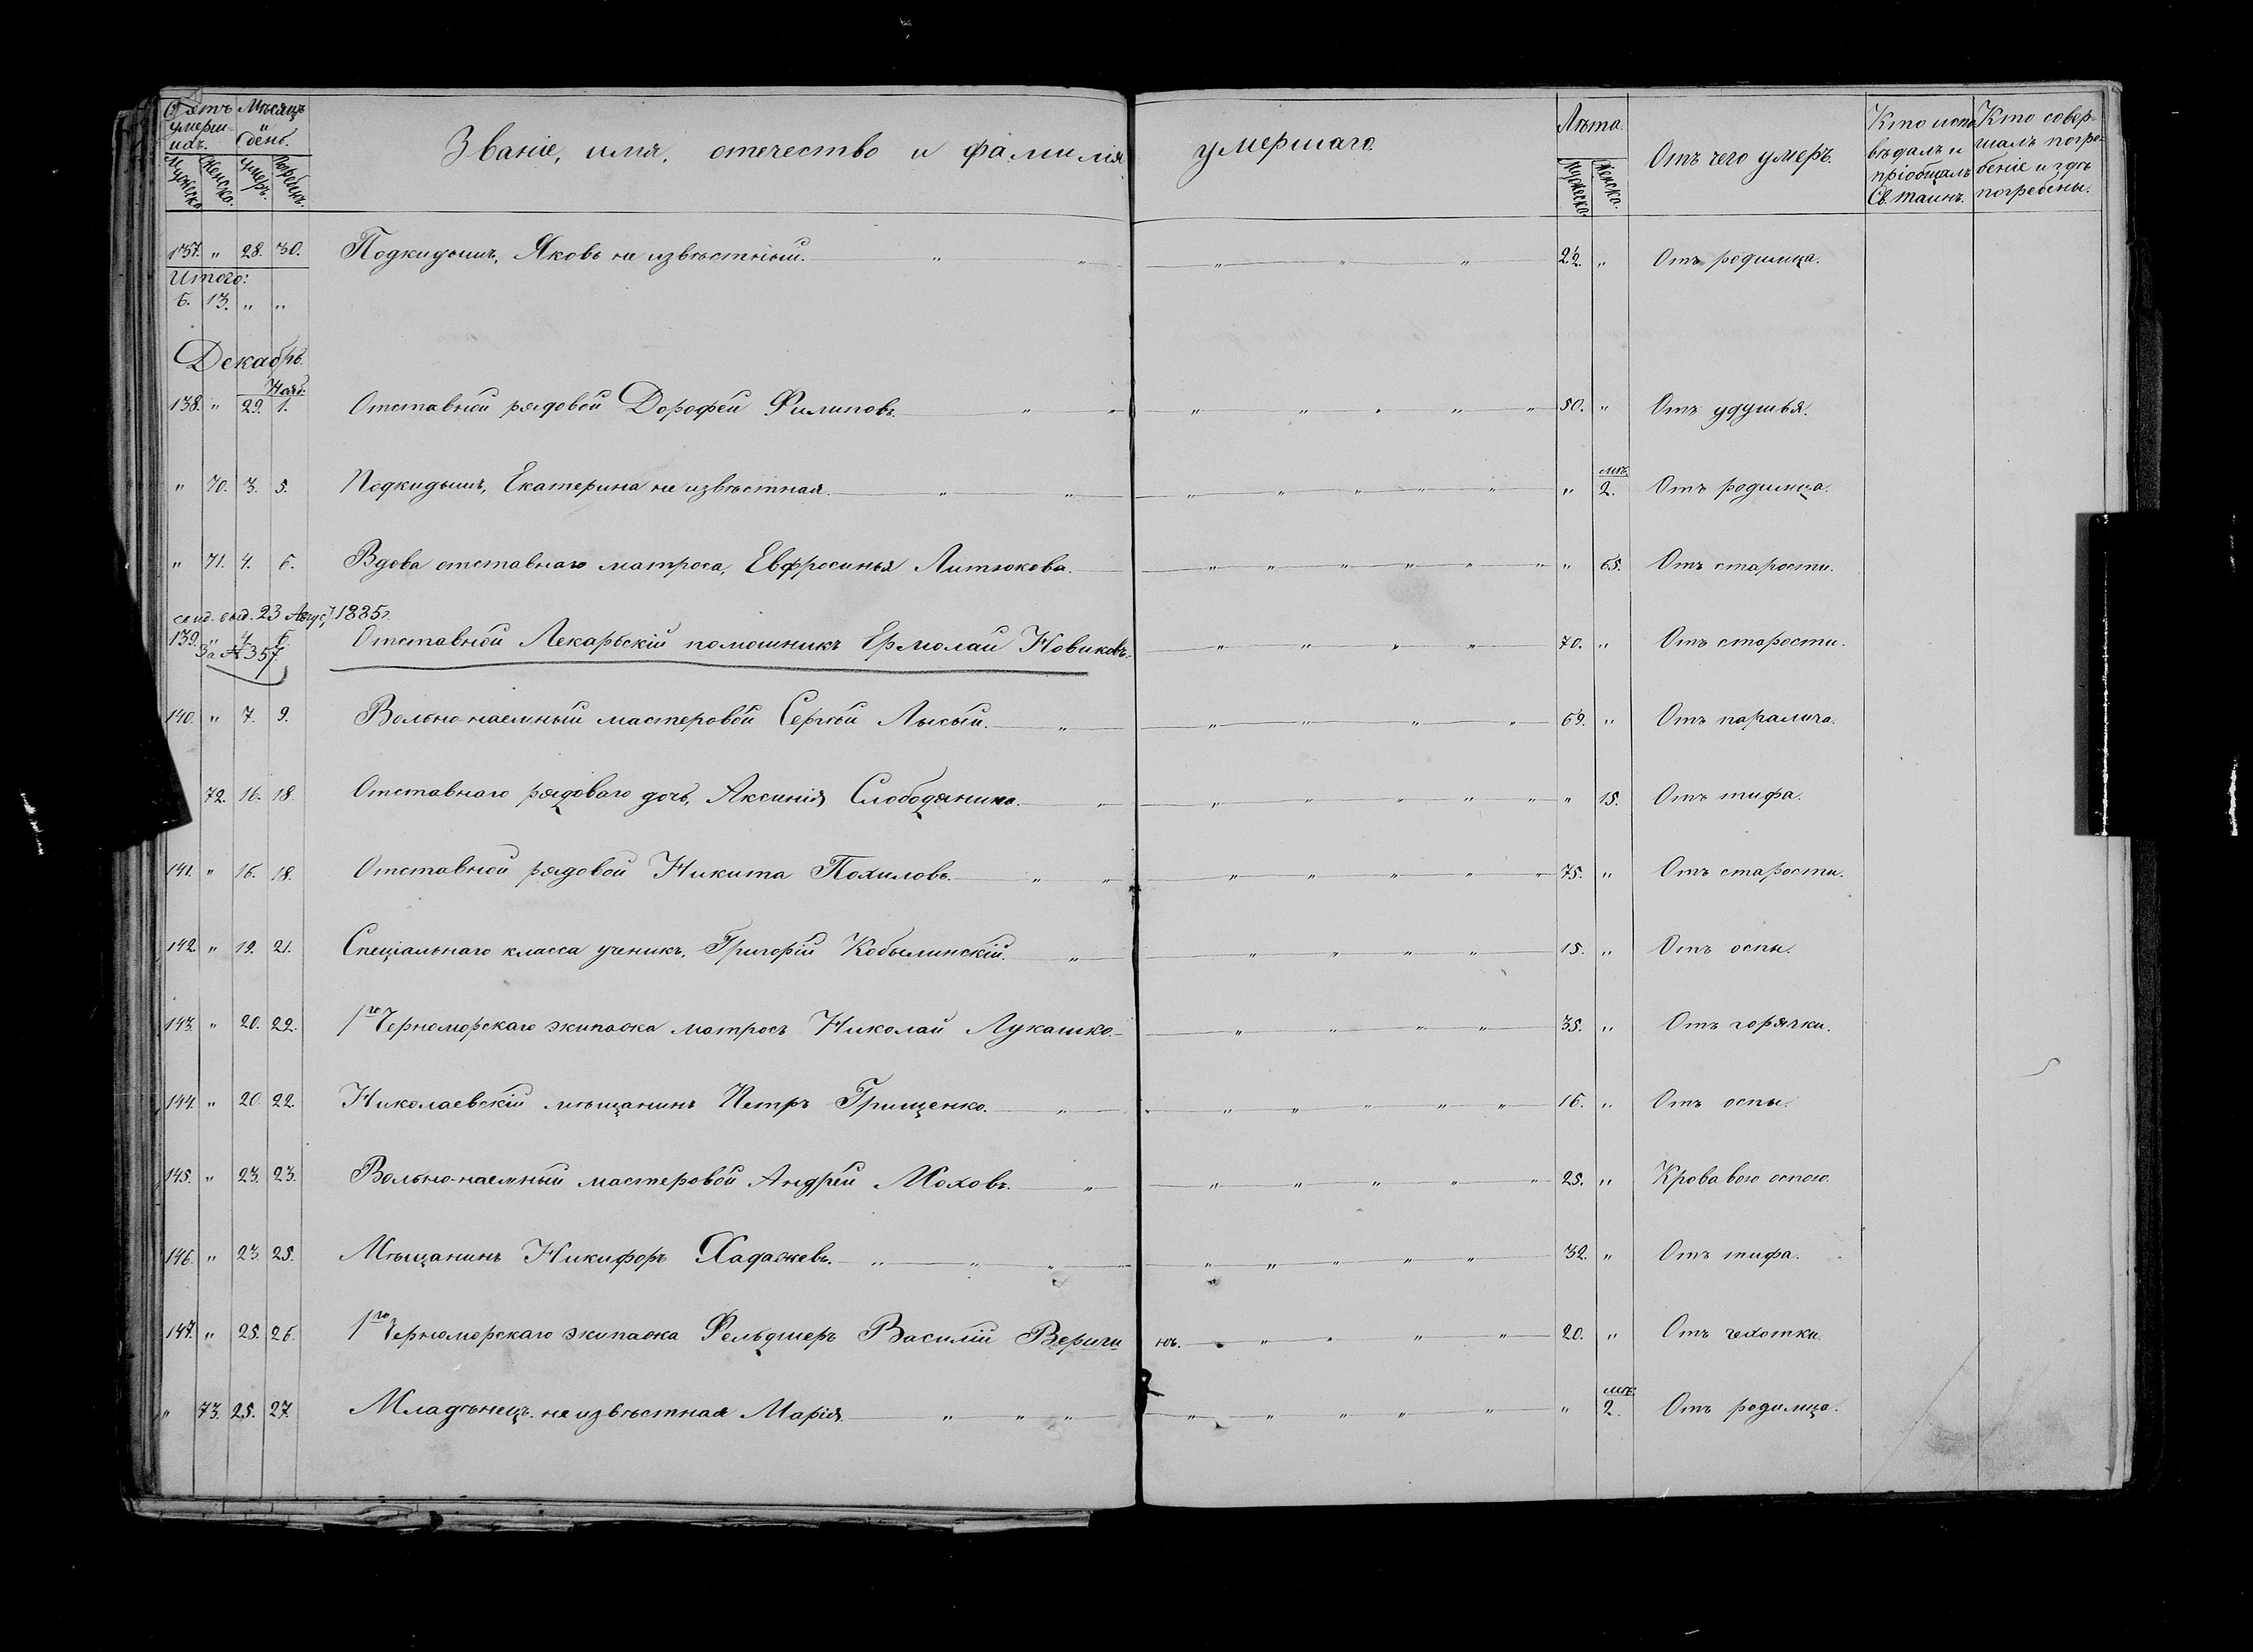 Счетъ умерш- ихъ. Мѣсяцъ и день. Званіе, имя, отечество и фамилія умершаго. Лѣта. Отъ чего умеръ. Кто испо- вѣдалъ и пріобщалъ Св. таинъ. Кто совер- шалъ погре- беніе и гдѣ погребены.
Мужеска. Женска. Умеръ. Погребенъ. Мужеска. Женска.
137. " 28. 30. Подкидышъ, Яковъ не извѣстный. " " " " " " Отъ родимца.
Итого:
6. 13. " "
Декабрь.
Нояб.
138. " 29. 1. Отставной рядовой Дорофей Филиповъ. " " " " " " " 50. " Отъ удушья.
мѣ.
" 70. 3. 5. Подкидышъ, Екатерина не извѣстная. " " " " " " " " 2. Отъ родимца.
" 71. 4. 6. Вдова отставнаго матроса, Евфросинья Литюкова. " " " " " " " 65. Отъ старости.
выд. 23 Авгус. 1885г.
139. " 4. 6. Отставной Лекарьскій помошникъ Ермолай Новиковъ. " " " " 70. " Отъ старости.
За № 357.
140. " 7. 9. Вольно-наемный мастеровой Сергѣй Лысый. " " " " " 69. " Отъ паралича.
72. 16. 18. Отставнаго рядоваго дочь, Аксинія Слободянина. " " " " " " " 15. Отъ тифа.
141. " 16. 18. Отставной рядовой Никита Похиловъ. " " " " " " " 75. " Отъ старости.
142. " 19. 21. Спеціальнаго класса ученикъ, Григорій Кобылинскій. " " " " " 15. " Отъ оспы.
143. " 20. 22. 1го Черноморскаго экипажа матросъ Николай Лукашко. " " " " 35. " Отъ горячки.
144. " 20. 22. Николаевскій мѣщанинъ Петръ Грищенко. " " " " " " 16. " Отъ оспы.
145. " 23. 23. Вольно-наемный мастеровой Андрей Моховъ. " " " " " " 25. " Кровавою оспою.
146. " 23. 25. Мѣщанинъ Никифоръ Хадажевъ. " " " " " " " " 32. " Отъ тифа.
147. " 25. 26. 1го Черноморскаго экипажа Фельдшеръ Василій Веригинъ. " " " " 20. " Отъ чехотки.
мѣ.
" 73. 25. 27. Младѣнецъ неизвѣстная Марія. " " " " " " " " " 2. Отъ родимца.